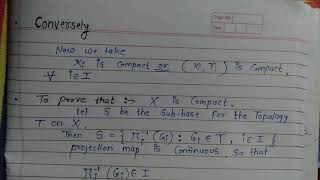 Conversely
Now we take
Xi is compact or (Xi, Ti) is compact,
∀ i ∈ I
To prove that :→ X is compact.
let S be the Sub-base for the Topology
T on X.
Then S = { Πi⁻¹ (Gi) : Gi ∈ T, i ∈ I }
projection map is continuous, so that
Πi⁻¹ (Gi) ∈ I